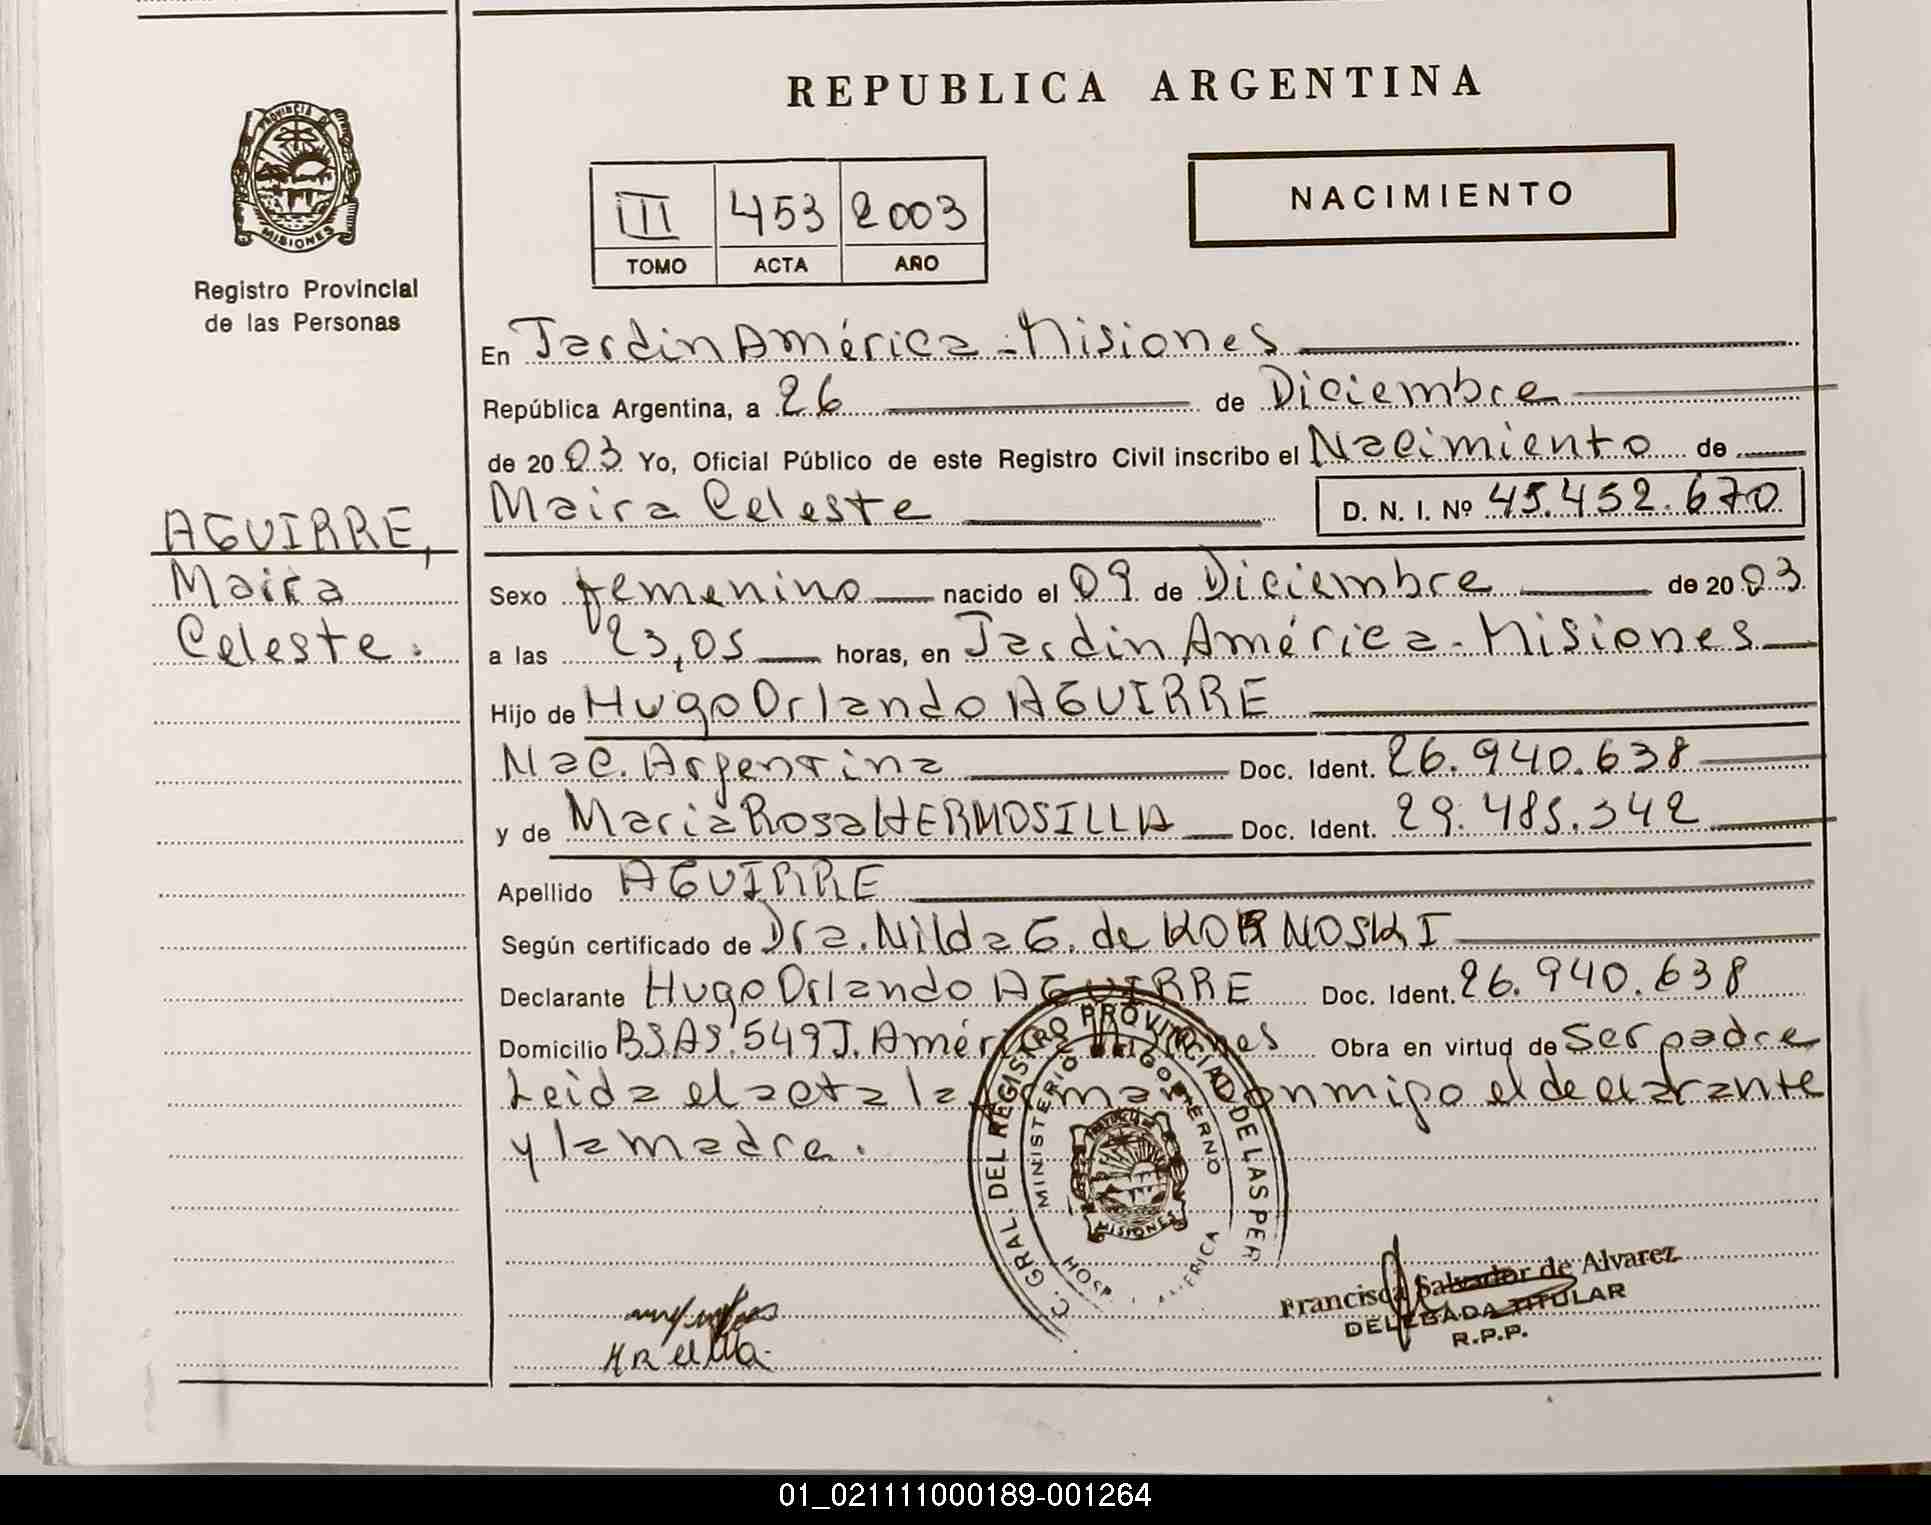 REPUBLICA ARGENTINA
PROVINCIA DE
MISIONES
Registro Provincial
de las Personas
III 453 2003
TOMO ACTA AÑO
NACIMIENTO
En Jardin América - Misiones
República Argentina, a 26 de Diciembre
de 20 03 Yo, Oficial Público de este Registro Civil inscribo el Nacimiento de
Maira Celeste D. N. I. Nº 45.452.670
AGUIRRE,
Maira
Celeste.
Sexo femenino nacido el 09 de Diciembre de 20 03.
a las 23,05 horas, en Jardin América - Misiones
Hijo de Hugo Orlando AGUIRRE
Nac. Argentina Doc. Ident. 26.940.638
y de Maria Rosa HERMOSILLA Doc. Ident. 29.485.342
Apellido AGUIRRE
Según certificado de Dra. Nilda G. de KORNOSKI
Declarante Hugo Orlando AGUIRRE Doc. Ident. 26.940.638
Domicilio BS.AS. 549 J. América Misiones Obra en virtud de ser padre
Leida el acta la firman conmigo el declarante
y la madre.
GRAL. DEL REGISTRO PROVINCIAL DE LAS PER
MINISTERIO DE GOBIERNO
MISIONES
Francisca Salvador de Alvarez
DELEGADA TITULAR
R.P.P.
01_021111000189-001264